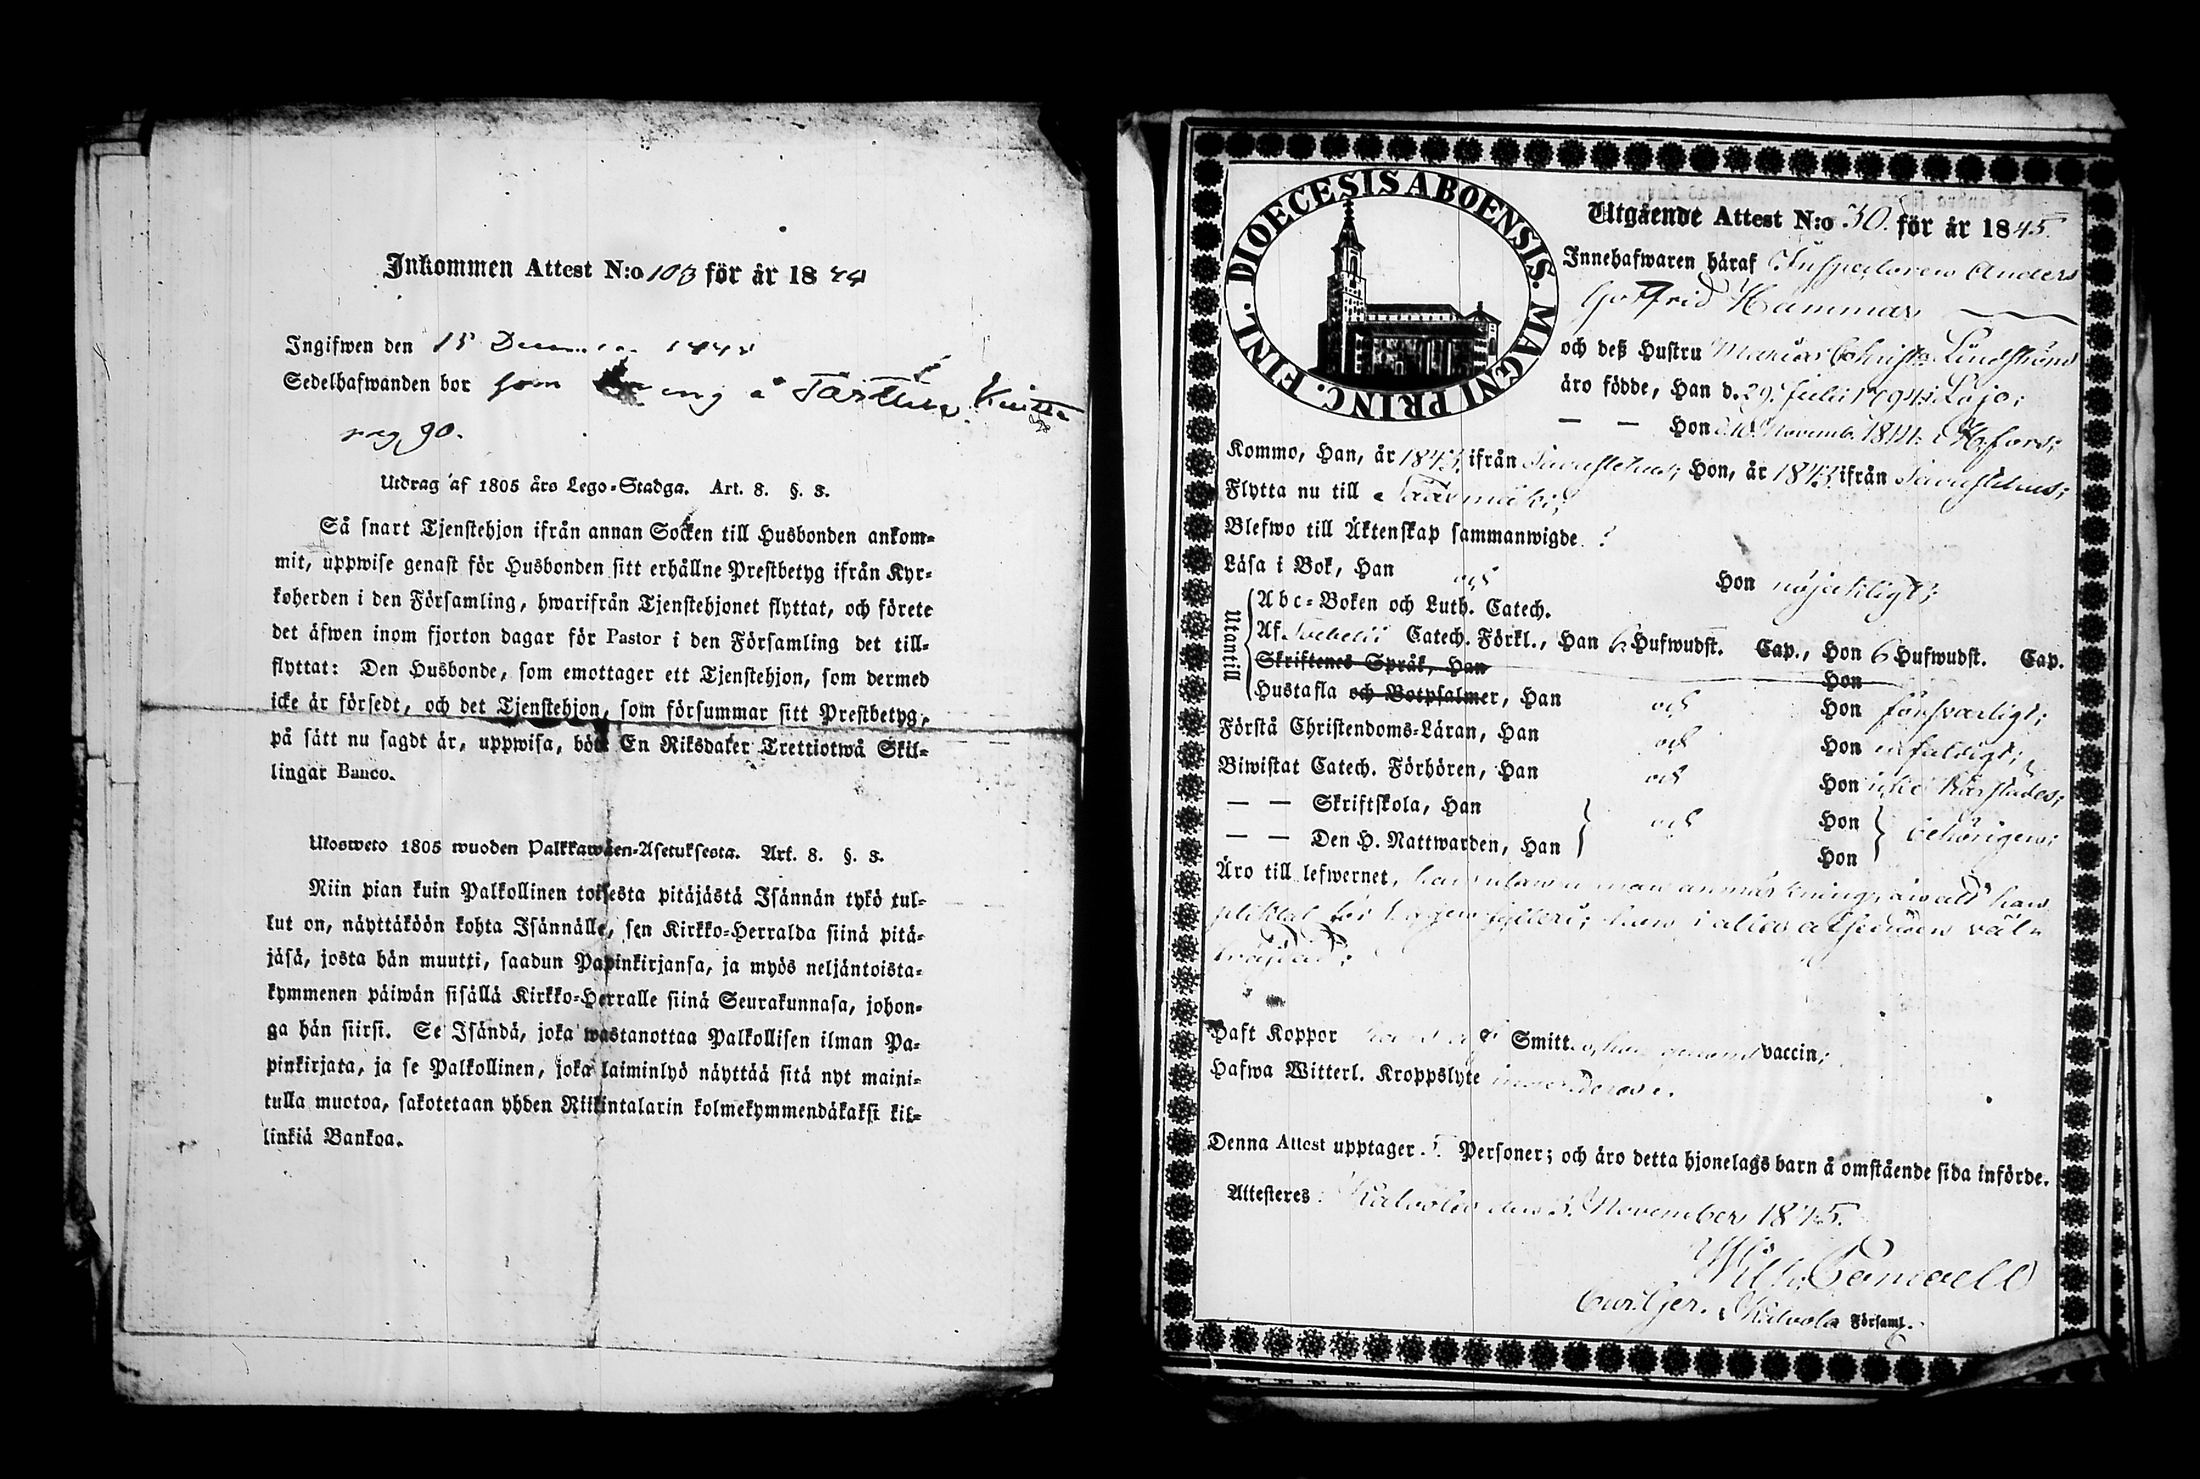 Inkommen Attest N:o 103 för år 1844
Ingifwen den 15 December 1844
Sedelhafwanden bor som å Tarttila
pag 90.
Utdrag af 1805 års Lego-Stadga. Art. 8. §. 3.
Så snart Tjenstehjon ifrån annan Socken till Husbonden ankom-
mit, uppwise genast för Husbonden sitt erhållne Prestbetyg ifrån Kyr-
koherden i den Församling, hwarifrån Tjenstehjonet flyttat, och förete
det äfwen inom fjorton dagar för Pastor i den Församling det till-
flyttat: Den Husbonde, som emottager ett Tjenstehjon, som dermed
icke är försedt, och det Tjenstehjon, som försummar sitt Prestbetyg,
på sätt nu sagdt är, uppwisa, böte En Riksdaler Trettiotwå Skil-
lingar Banco.
Ulosweto 1805 wuoden Palkkawäen-Asetuksesta. Art. 8. §. 3.
Niin pian kuin Palkollinen toisesta pitäjästä Isännän tykö tul-
lut on, näyttäköön kohta Isännälle, sen Kirkko-Herralda siinä pitä-
jäsä, josta hän muutti, saadun Papinkirjansa, ja myös neljäntoista-
kymmenen päiwän sisällä Kirkko-Herralle siinä Seurakunnasa, johon-
ga hän siirsi. Se Isändä, joka wastanottaa Palkollisen ilman Pa-
pinkirjata, ja se Palkollinen, joka laiminlyö näyttää sitä nyt maini-
tulla muotoa, sakotetaan yhden Riikintalarin kolmekymmendäkaksi kil-
linkiä Bankoa.
DIOECESIS ABOENSIS. MAGNI PRINC. FINL.
Utgående Attest N:o 30. för år 1845.
Innehafwaren häraf Inspectoren Anders
Gottfrid Hammar
och deß Hustru Maria Christ. Lindström
äro födde, Han d. 29. Julii 1794 i Lojo;
— — Hon d. 10 Novemb. 1811. i H:fors;
Kommo, Han, år 1843. ifrån Tavastehus; Hon, år 1843 ifrån Tavastehus;
Flytta nu till Saarimäki;
Blefwo till Äktenskap sammanwigde ?
Läsa i Bok, Han och Hon nöjaktligt;
Utantill
Abc-Boken och Luth. Catech.
Af Svebelii Catech. Förkl., Han 6 Hufwudst. Cap., Hon 6 Hufwudst. Cap.
Skriftenes Språk, Han Hon
Hustafla och Botpsalmer, Han och Hon försvarligt;
Förstå Christendoms-Läran, Han och Hon enfaldigt;
Biwistat Catech. Förhören, Han och Hon icke härstädes;
— — Skriftskola, Han och Hon behörigen;
— — Den H. Nattwarden, Han Hon
Äro till lefwernet, han utan annan anmärkning, än att han
pliktat för fylleri; hon i allo a
Haft Koppor Smitt. vaccin;
Hafwa Witterl. Kroppslyte
Denna Attest upptager 5. Personer; och äro detta hjonelags barn å omstående sida införde.
Attesteres: Kalvola den 3. November 1845.
Wilh.
Cur. Ger. i Kalvola Församl.